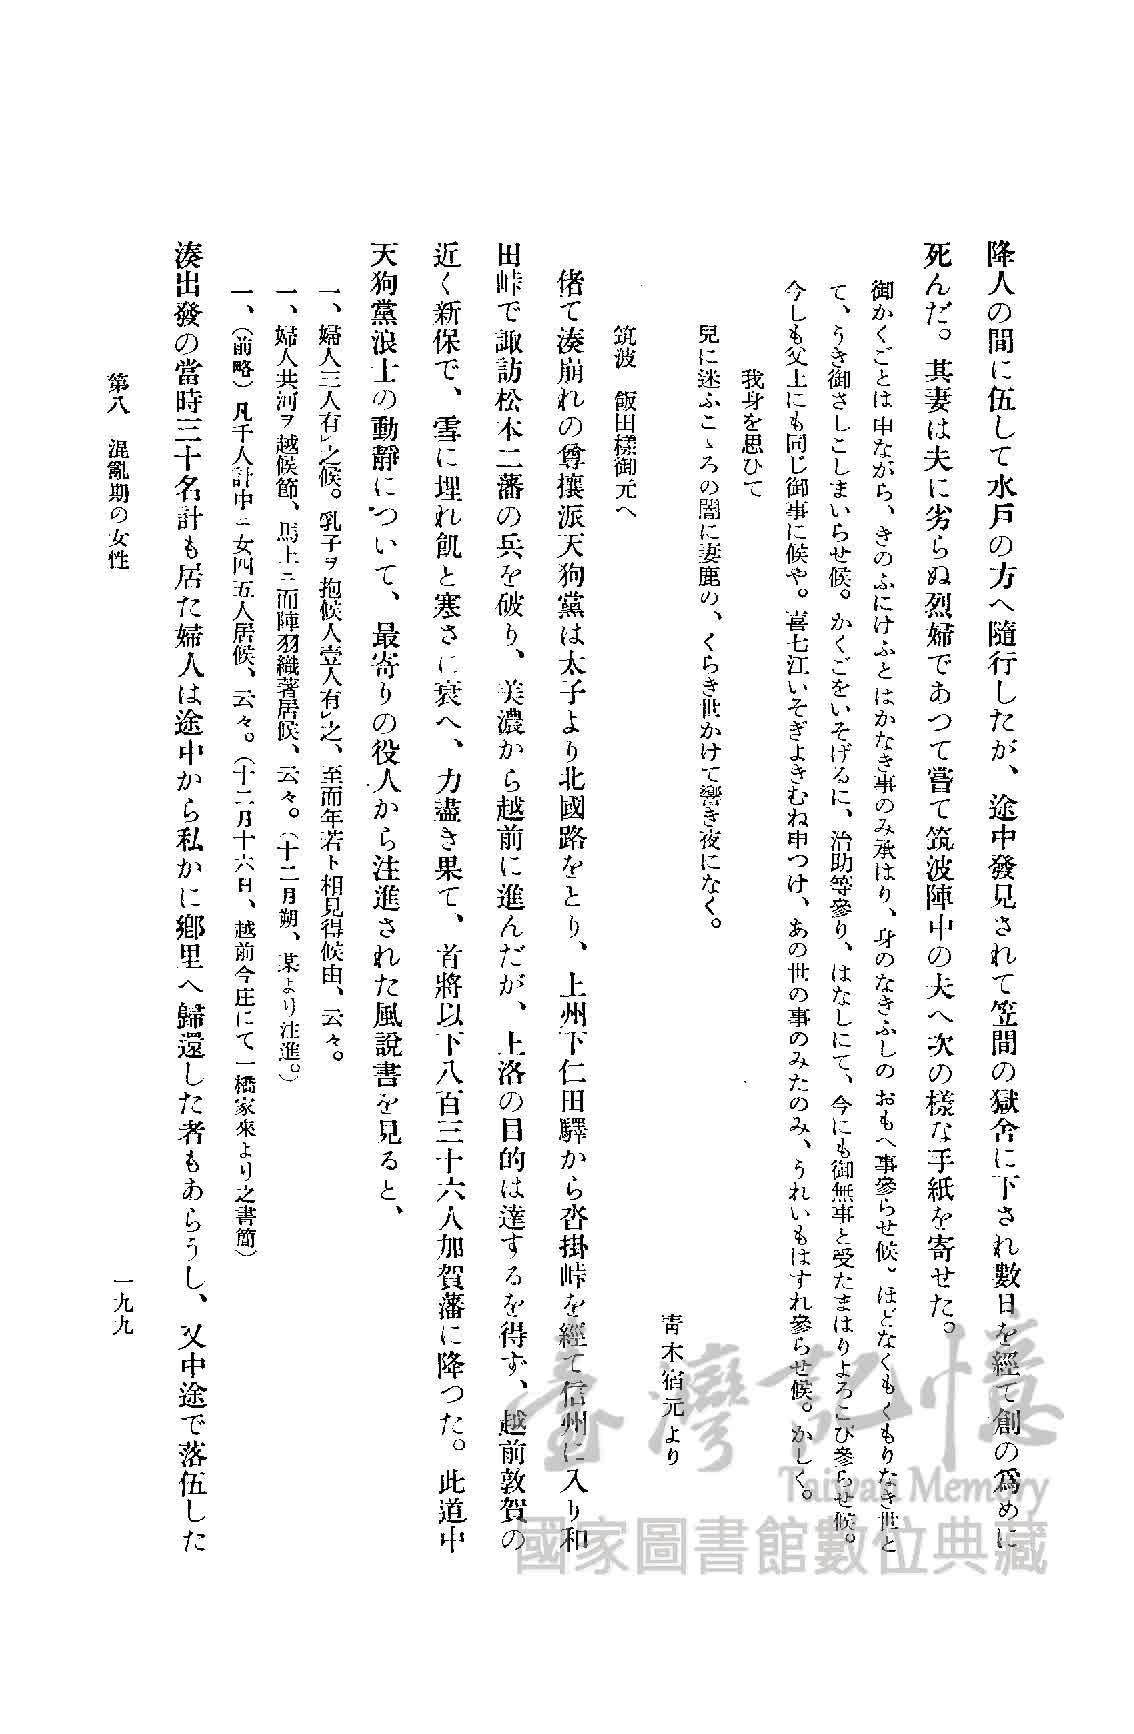 降人の間に伍して水戸の方へ隨行したが、途中發見されて笠間の獄舍に下され數日を經て創の爲めに
死んだ。其妻は夫に劣らぬ烈婦であつて嘗て筑波陣中の夫へ次の樣な手紙を寄せた。
御かくごとは申ながら、きのふにけふとはかなき事のみ承はり、身のなきふしのおもへ事參らせ候。ほどなくもくもりなき世と
て、うき御さしこしまいらせ候。かくごをいそげるに、治助等參り、はなしにて、今にも御無事と受たまはりよろこび參らせ候。
今しも父上にも同じ御事に候や。喜七江いそぎよきむね申つけ、あの世の事のみたのみ、うれいもはすれ參らせ候。かしく。
我身を思ひて
兒に迷ふこゝろの闇に妻鹿の、くらき世かけて響き夜になく。
靑木宿元より
筑波　飯田樣御元へ
偖て湊崩れの尊攘派天狗黨は太子より北國路をとり、上州下仁田驛から沓掛峠を經て信州に入り和
田峠で諏訪松本二藩の兵を破り、美濃から越前に進んだが、上洛の目的は達するを得ず、越前敦賀の
近く新保で、雪に埋れ飢と寒さに衰へ、力盡き果て、首將以下八百三十六人加賀藩に降つた。此道中
天狗黨浪士の動靜について、最寄りの役人から注進された風說書を見ると、
一、婦人三人有レ之候。乳子ヲ抱候人壹人有レ之、至而年若ト相見得候由、云々。
一、婦人共河ヲ越候節、馬上ニ而陣羽織著居候、云々。（十二月朔、某より注進。）
一、（前略）凡千人計中ニ女四五人居候、云々。（十二月十六日、越前今庄にて一橋家來より之書簡）
湊出發の當時三十名計も居た婦人は途中から私かに鄕里へ歸還した者もあらうし、又中途で落伍した
第八　混亂期の女性
一九九
臺灣記憶
Taiwan Memory
國家圖書館數位典藏